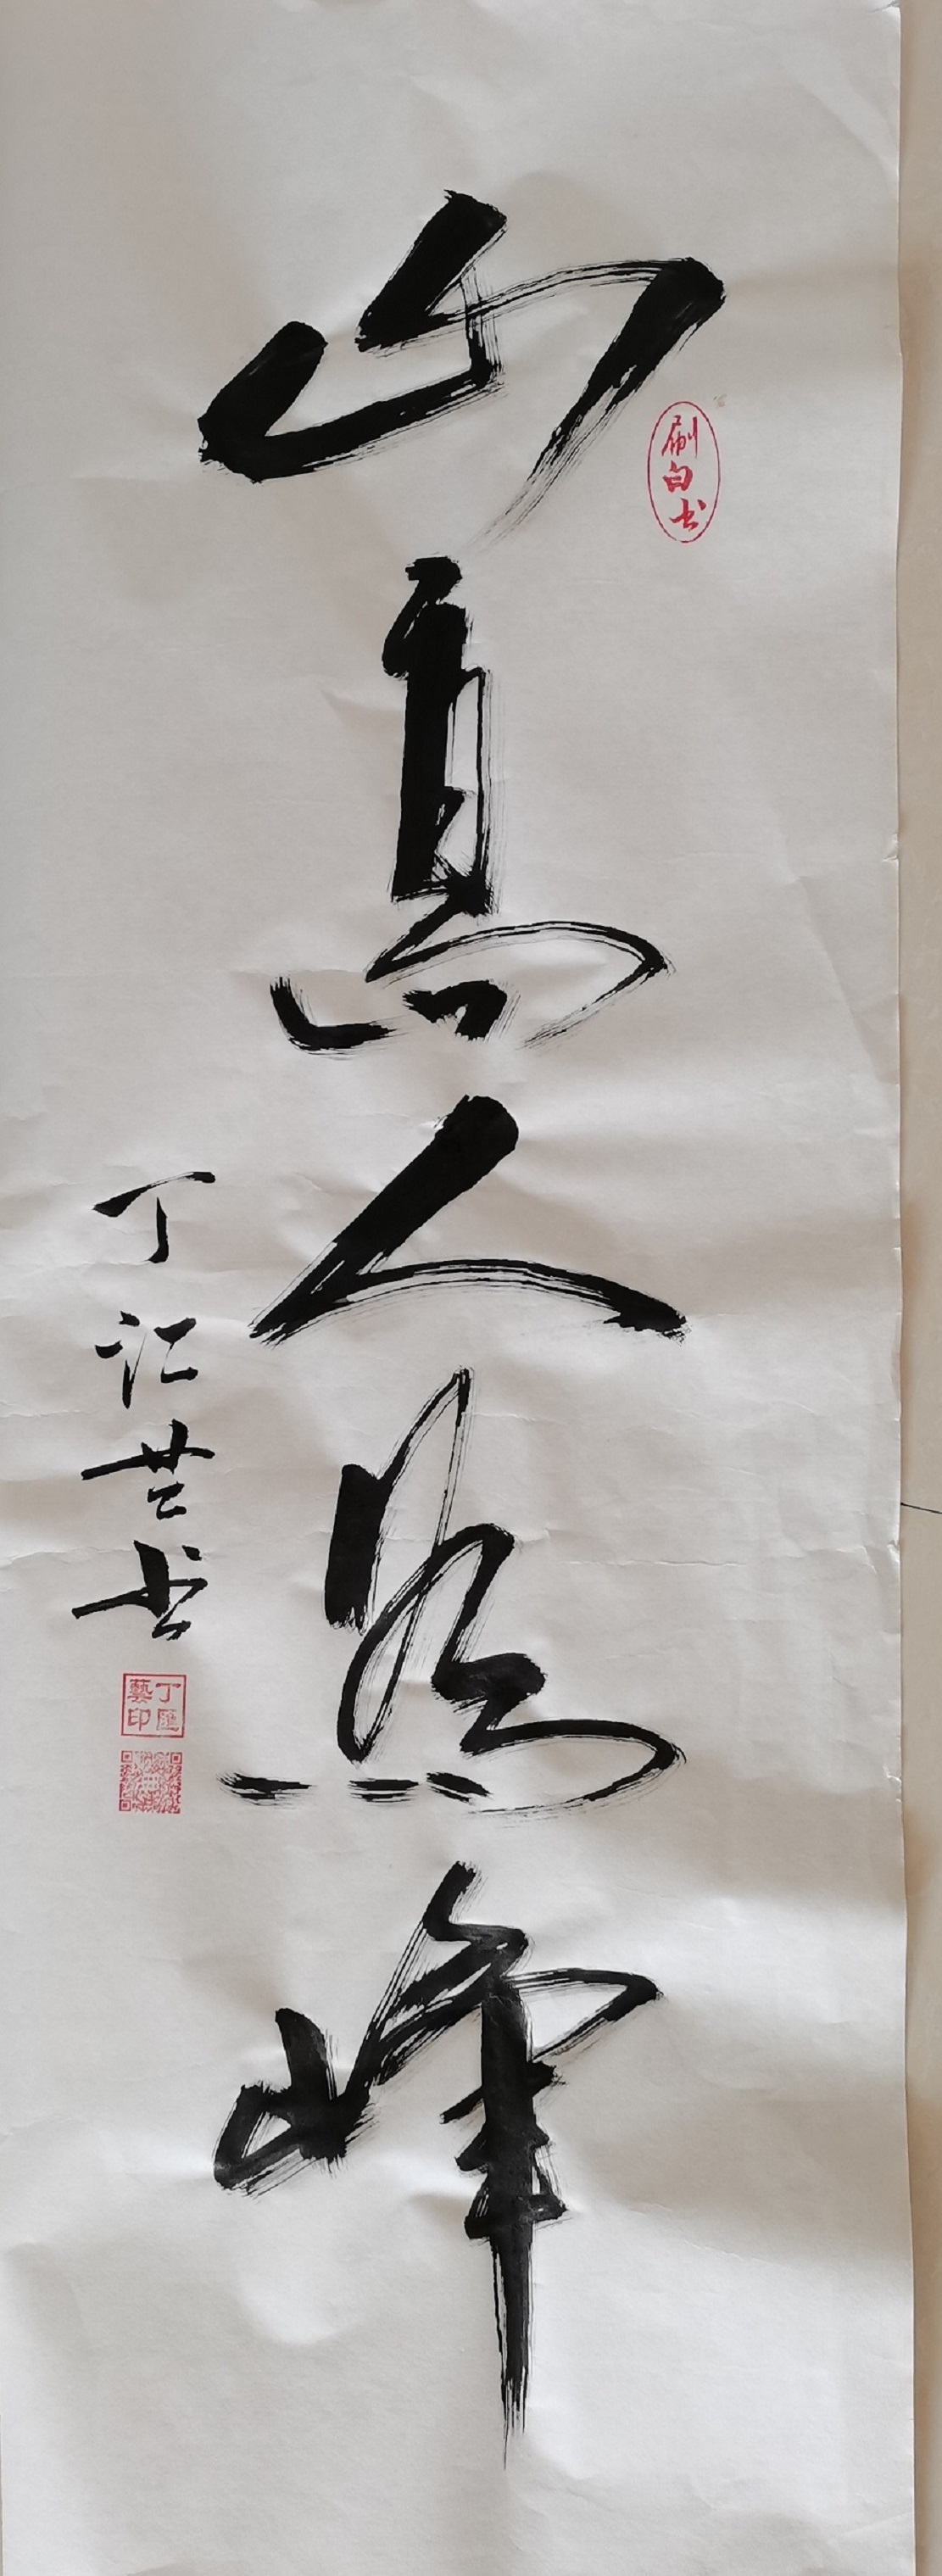 山高人为峰
刷白书
丁汇芸书
丁匯藝印